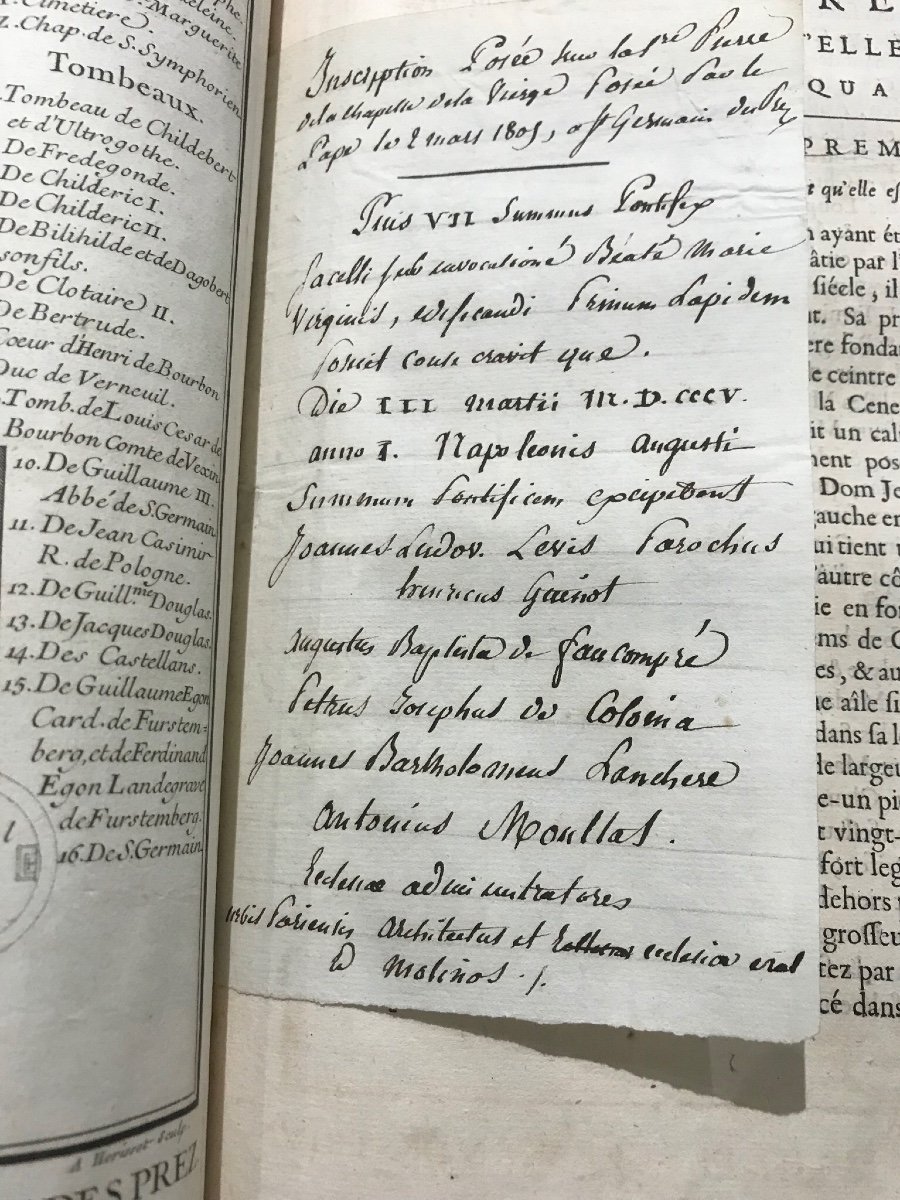 Cimetiere.
Chap. de S. Symphorien
Tombeaux.
Tombeau de Childebert
et d'Ultrogothe.
De Fredegonde.
De Childeric I.
De Childeric II.
De Bilihilde et de Dagobert
son fils.
De Clotaire II.
De Bertrude.
Coeur d'Henri de Bourbon
Duc de Verneuil.
Tomb. de Louis Cesar de
Bourbon Comte de Vexin
10. De Guillaume III.
Abbé de S. Germain
11. De Jean Casimir
R. de Pologne.
12. De Guill.me Douglas.
13. De Jacques Douglas.
14. Des Castellans.
15. De Guillaume Egon
Card. de Furstem-
berg, et de Ferdinand
Egon Landegrave
de Furstemberg.
16. De S. Germain.
DES PREZ
Inscription Posée sur la 1re Pierre
de la chapelle de la Vierge Posée Par le
Pape le 2 mars 1805, a St Germain des Prez
Pius VII Summus Pontifex
Sacelli sub invocationé Béaté Marie
Virginis, edificandi Primum Lapidem
Posuit consecravit que.
Die III martii M.D.CCCV.
anno I. Napoleonis augusti
Summum Pontificem excipiebant
Joannes Ludov. Levis Parochus
henricus Guenot
augustus Baptista de faucompré
Petrus Josephus de Colonia
Joannes Bartholomeus Lanchere
antonius Moullas.
Ecclesiæ administratores
urbis Pariensis architectus et ecclesiæ erat
Molinos
TELLE
QUA
PREM
qu'elle es
ayant ét
âtie par l'
siécle, il
Sa pr
ere fonda
ceintre
la Cene
it un cal
ment pos
Dom Je
gauche en
ui tient
l'autre cô
ie en fo
ems de C
es, & au
ne aîle si
dans sa l
de largeu
e-un pi
vingt-
fort leg
dehors
grosseu
tez par
cé dans